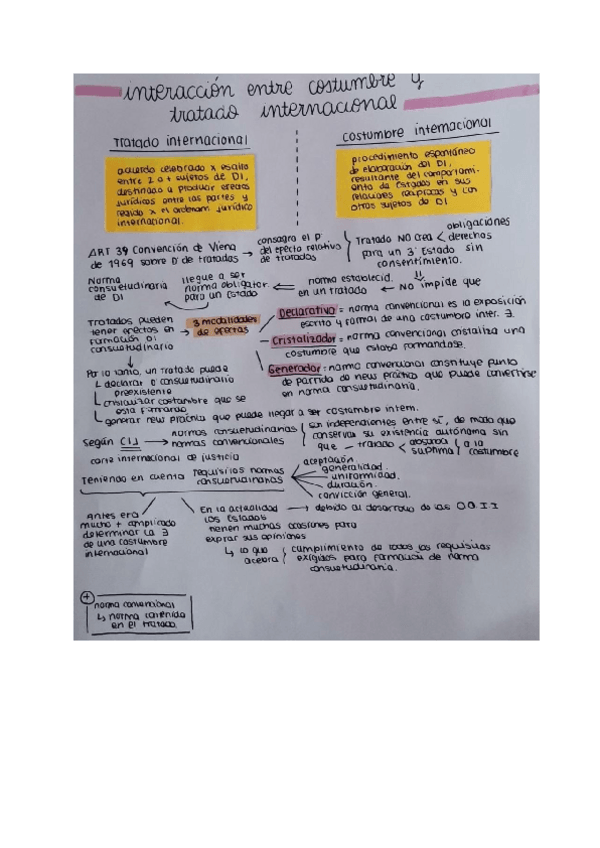 interacción entre costumbre y
tratado internacional
Tratado internacional
acuerdo celebrado x escrito
entre 2 o + sujetos de DI,
destinado a producir efectos
jurídicos entre las partes y
regido x el ordenam jurídico
internacional.
costumbre internacional
procedimiento espontáneo
de elaboración del DI,
resultante del comportami-
ento de Estado en sus
relaciones recíprocas y con
otros sujetos de DI
ART 34 Convención de Viena
de 1969 sobre D' de tratados
→ consagra el p'
del efecto relativo
de tratados
Tratado NO crea < obligaciones
derechos
para un 3' Estado sin
consentimiento.
⇓
NO impide que
norma establecid.
en un tratado
llegue a ser
norma obligator.
para un Estado
Norma
consuetudinaria
de DI
Tratados pueden
tener efectos en
formación DI
consuetudinario
→ 3 modalidades
de efectos
Declarativo = norma convencional es la exposición
escrita y formal de una costumbre inter. ∃.
Cristalizador = norma convencional cristaliza una
costumbre que estaba formandose.
Generador = norma convencional constituye punto
de partida de new práctica que puede convertirse
en norma consuetudinaria.
Por lo tanto, un tratado puede
↳ declarar D' consuetudinario
preexistente
↳ cristalizar costumbre que se
está formando
↳ generar new práctica que puede llegar a ser costumbre intern.
Según CIJ → normas consuetudinarias
normas convencionales
corte internacional de justicia
son independientes entre sí, de modo que
conserva su existencia autónoma sin
que — tratado < absorba
suprima
a la
costumbre
Teniendo en cuenta requisitos normas
consuetudinarias
aceptación
generalidad.
uniformidad.
duración.
convicción general.
Antes era
mucho + complicado
determinar la ∃
de una costumbre
internacional
En la actualidad → debido al desarrollo de las OO.II
los Estados
tienen muchas ocasiones para
exprar sus opiniones
↳ lo que
acelera
cumplimiento de todos los requisitos
exigidos para formación de norma
consuetudinaria.
+
norma convencional
↳ norma contenida
en el tratado.